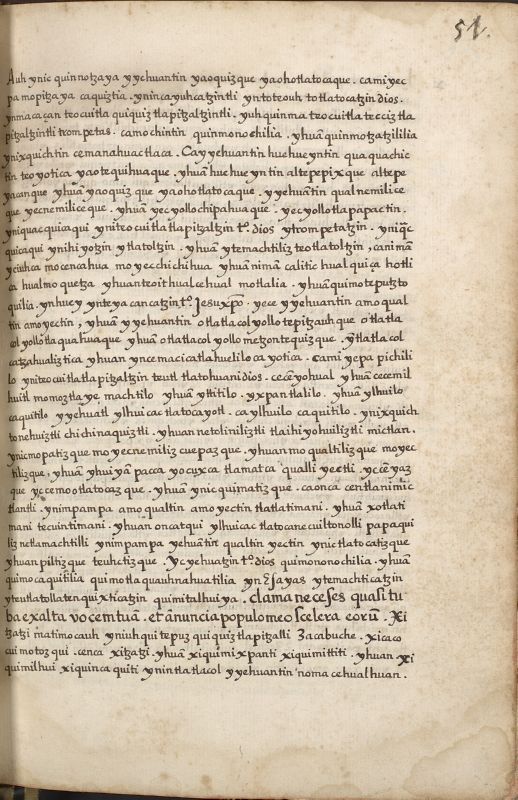 51.
Auh ynic quinnotzaya yyehuantin yaoquizque yaohotlatocaque. camiyec
pamopitzaya caquiztia. ynincayuhcatzintli yntoteouh totlatocatzin dios.
ynmacaçan teocuitla quiquiztlapitzaltzintli. yuhquinma teocuitla tecciztla
pitzaltzintli trompetas. camochintin quinmononochilia. yhuā quinmotzatzililia
ynixquichtin cemanahuactlaca. Cayyehuantin huehueyntin quaquachic
tin teoyotica yaotequihuaque. yhuā huehueyntin altepepixque altepe
yacanque yhuā yaoquizque yaohotlatocaque. yyehuātin qualnemilice
que yecnemiliceque. yhuā yecyollochipahuaque. yecyollotlapapactin.
yniquacquicaqui ynteocuitlatlapitzaltzin tº. dios ytrompetatzin. yniq̄c
quicaqui ynihiyotzin ytlatoltzin. yhuā ytemachtiliz teotlatoltzin, canimā
yciuhca mocencahua moyecchichihua yhuā nimā calitic hualquiça hotli
ca hualmoquetza yhuanteoithualcehual motlalia. yhuā quimoteputzto
quilia. ynhuey ynteyacancatzin tº. Jesu xp̄o. yece yyehuantin amoqual
tin amoyectin, yhuā yyehuantin otlatlacolyollotepitzauhque otlatla
colyollotlaquahuaque yhuā otlatlacolyollometzontequizque. ytlatlacol
catzahualiztica yhuan yncemacicatlahuelilocayotica. camiyepapichili
lo ynteocuitlatlapitzaltzin teutl tlatohuani dios. cecēyohual yhuā cecemil
huitl momoztlaye machtilo yhuā yttitilo. yxpantlalilo. yhuā ylhuilo
caquitilo yyehuatl ylhuicac tlatocayotl. caylhuilo caquitilo. ynixquich
tonehuiztli chichinaquiztli. yhuan netoliniliztli tlaihiyohuiliztli mictlan.
ynicmopatizque moyecnemilizcuepazque. yhuan moqualtilizque moyec
tilizque, yhuā yhuiyā pacca yocuxca tlamatca qualli yeztli. ycceyaz
que yccemotlatocazque. yhuā ynicquimatizque. caonca centlani mic
tlantli. ynimpampa amoqualtin amoyectin tlatlatimani. yhuā xotlati
mani tecuintimani. yhuan oncatqui ylhuicac tlatocanecuiltonolli papaqui
liz netlamachtilli ynimpampa yehuātin qualtin yectin ynictlatocatizque
yhuan piltizque teuhctizque. Yc yehuatzin tº. dios quimononochilia. yhuā
quimocaquitilia quimotlaquauhnahuatilia yn Esayas ytemachticatzin
yteutlatollatenquixticatzin quimitalhuiya. Clama ne ceses quasi tu
ba exalta vocem tuā. et ānuncia populo meo scelera eorū. Xi
tzatzi matimocauh yniuhquitepuzquiquiztlapitzalli Zacabuche. xicaco
cuimotozqui. cenca xitzatzi. yhuā xiquimixpanti xiquimittiti. yhuan xi
quimilhui xiquincaquiti ynintlatlacol yyehuantin nomacehualhuan.